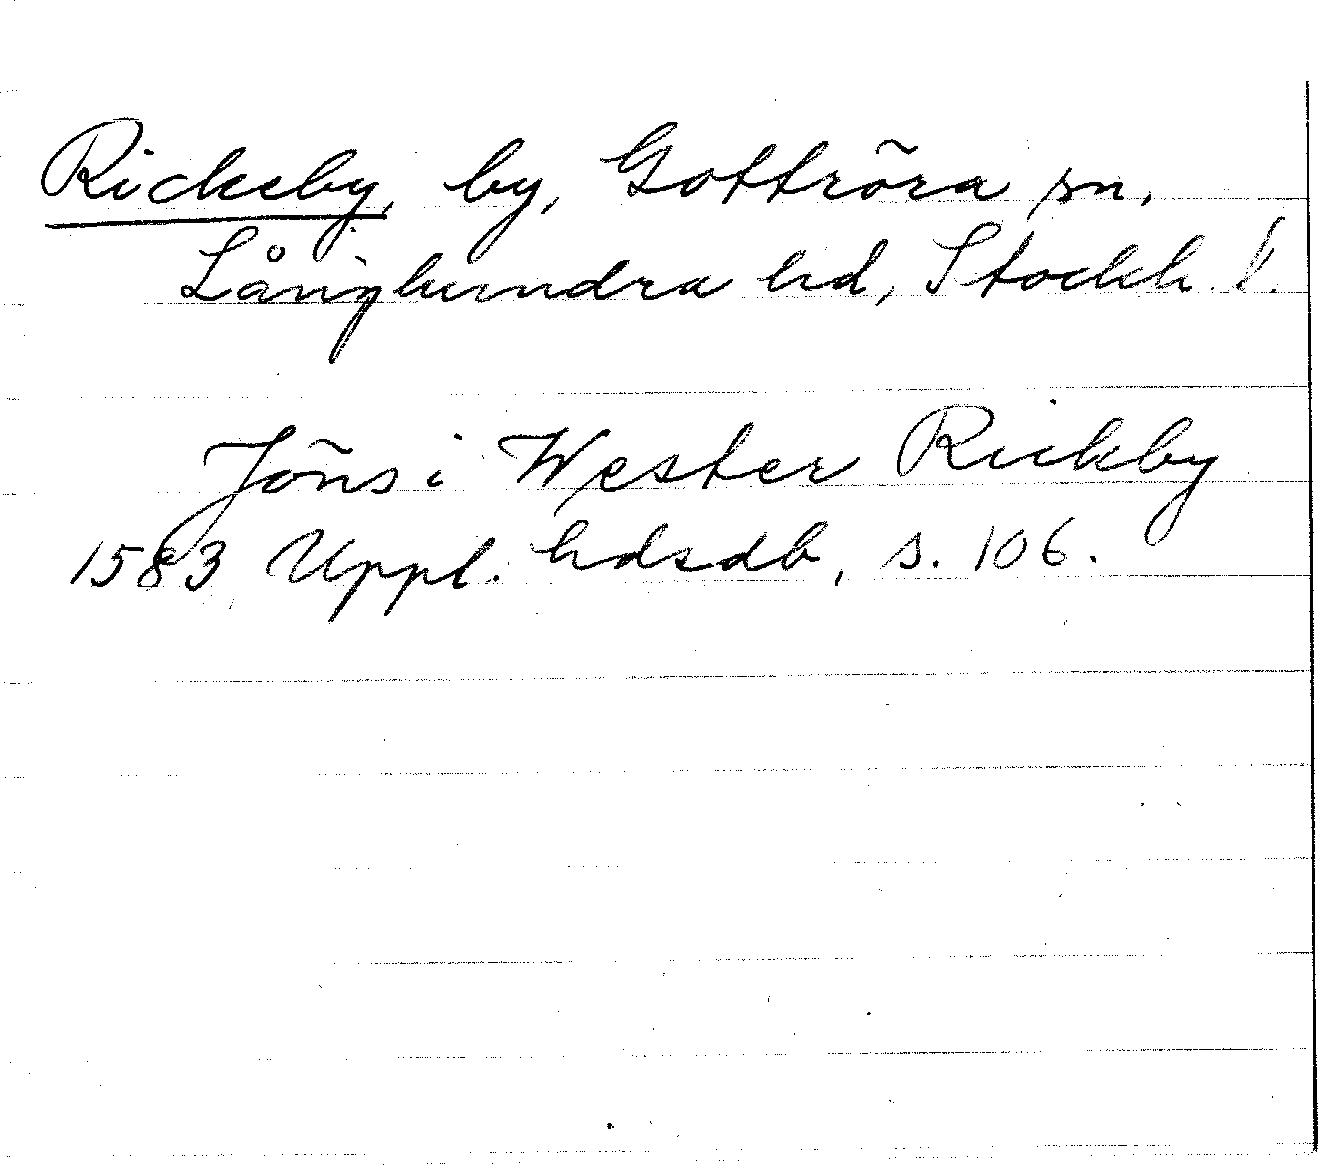 Rickeby, by, Gottröra sn,
Långhundra hd, Stockh. l.
Jöns i Wester Rickby
1583 Uppl. hdsdb, s. 106.